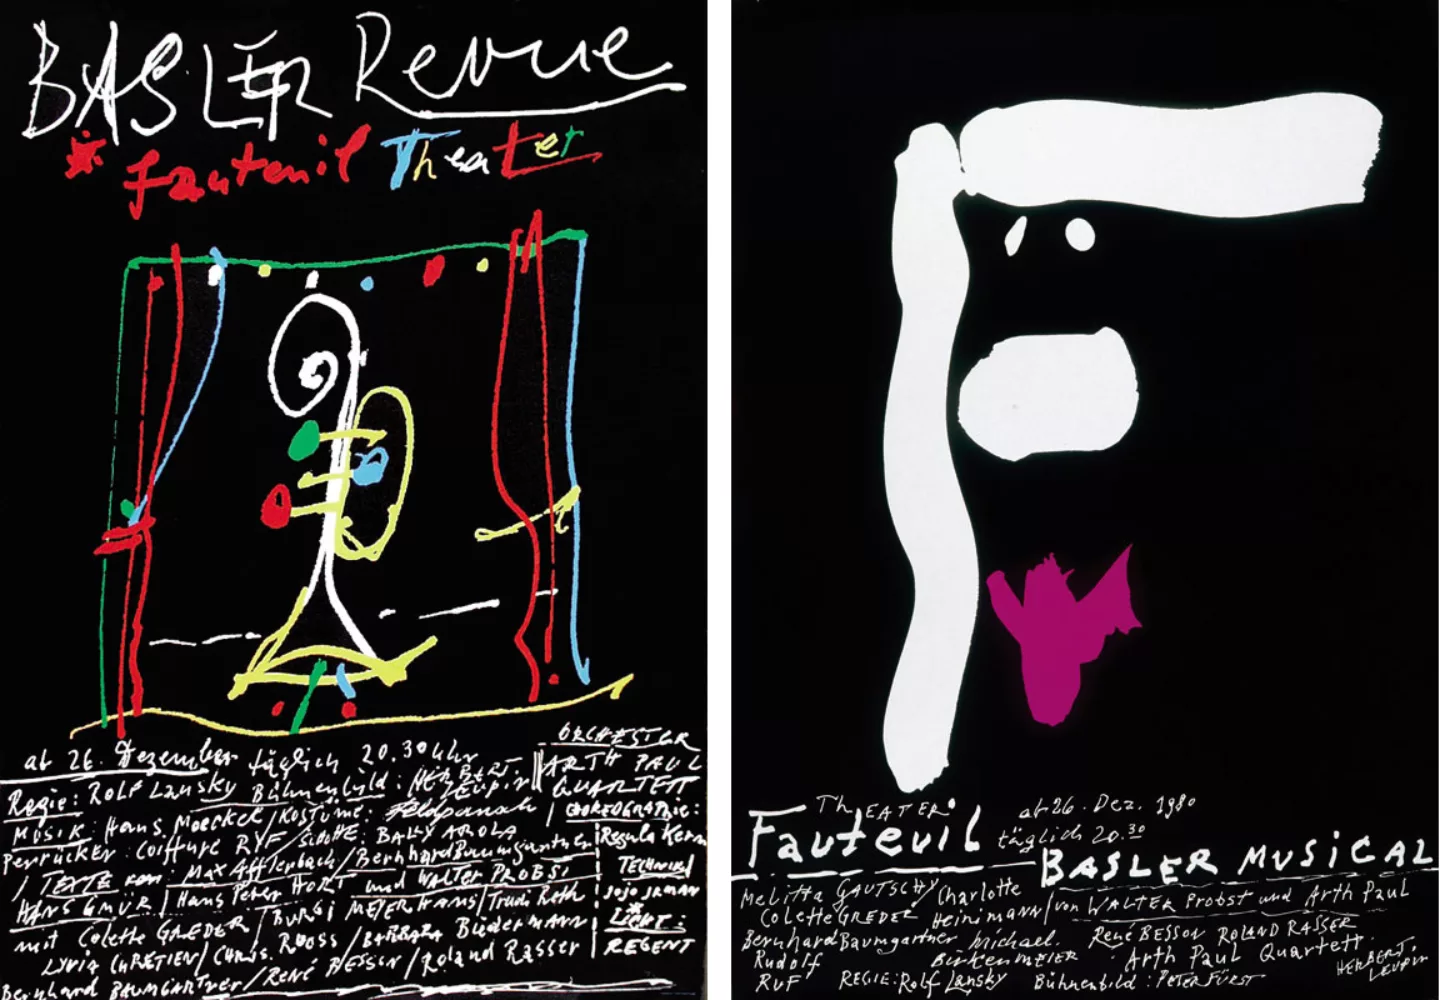 BASLER Revue
fauteuil Theater
ab 26. Dezember täglich 20.30 Uhr
Regie: ROLF Lansky Bühnenbild: HERBERT LEUPIN
MUSIK: Hans Moeckel / KOSTÜME:
Perrücken: Coiffure RYF / BALLY AROLA
/ TEXTE von: Max Afflerbach / Bernhard Baumgartner
HANS GMÜR / Hans Peter HORT und WALTER PROBST
mit Colette GREDER / BURGI MEYER HANS / Trudi Roth
LYVIA CHRETIEN / CHRIS. ROOSS / BARBARA Büdermann
Bernhard BAUMGARTner / René BESSON / Roland Rasser
ORCHESTER
ARTH PAUL
QUARTETT
CHOREOGRAPHIE:
Regula Kern
TECHNIK:
LICHT:
REGENT
F
ThEATER
Fauteuil
ab 26. Dez. 1980
täglich 20.30
BASLER MUSICAL
Melitta GAUTSCHY Charlotte
Colette GREDER Heinimann / von WALTER Probst und Arth Paul
Bernhard Baumgartner Michael. René BESSON ROLAND RASSER
Rudolf Birkenmeier Arth Paul Quartett.
RUF REGIE: Rolf Lansky Bühnenbild: PETER FÜRST
HERBERT LEUPIN